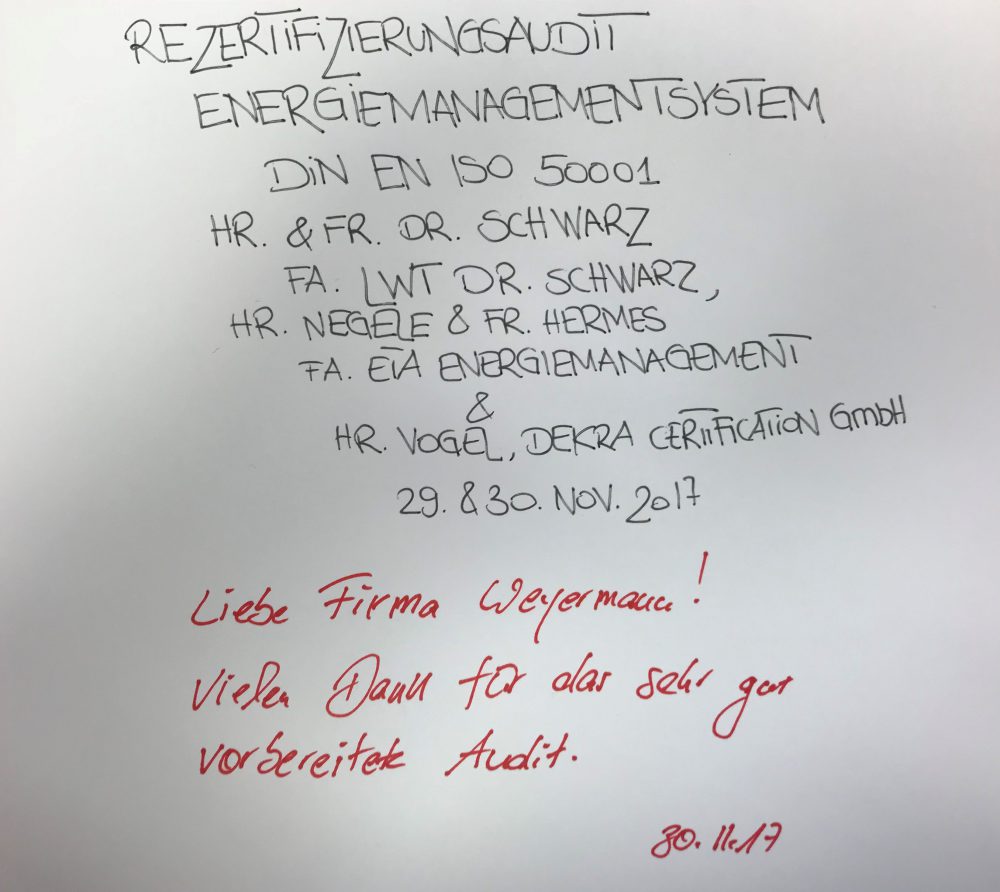 REZERTIFIZIERUNGSAUDIT
ENERGIEMANAGEMENTSYSTEM
DIN EN ISO 50001
HR. & FR. DR. SCHWARZ
FA. LWT DR. SCHWARZ,
HR. NEGELE & FR. HERMES
FA. ETA ENERGIEMANAGEMENT
&
HR. VOGEL, DEKRA CERTIFICATION GmbH
29. & 30. NOV. 2017
Liebe Firma Weyermann!
Vielen Dank für das sehr gut
vorbereitete Audit.
30.11.17